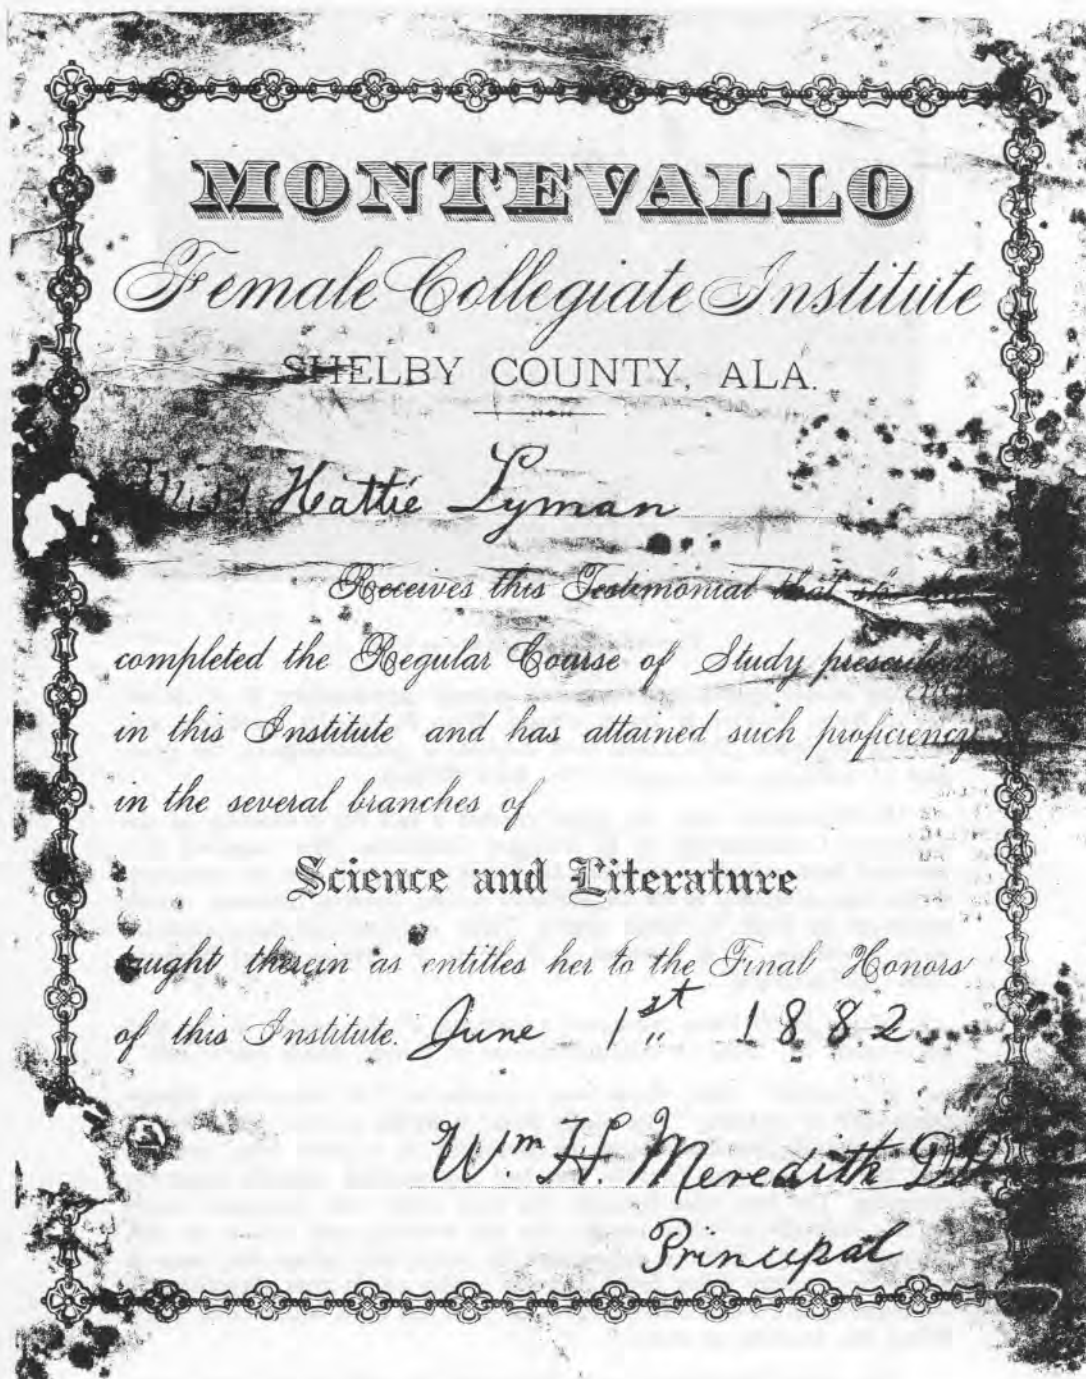 MONTEVALLO
Female Collegiate Institute
SHELBY COUNTY, ALA.
Miss Hattie Lyman
Receives this Testimonial that she has
completed the Regular Course of Study prescribed
in this Institute and has attained such proficiency
in the several branches of
Science and Literature
taught therein as entitles her to the Final Honors
of this Institute. June 1st 1882
Wm H. Meredith DD
Principal